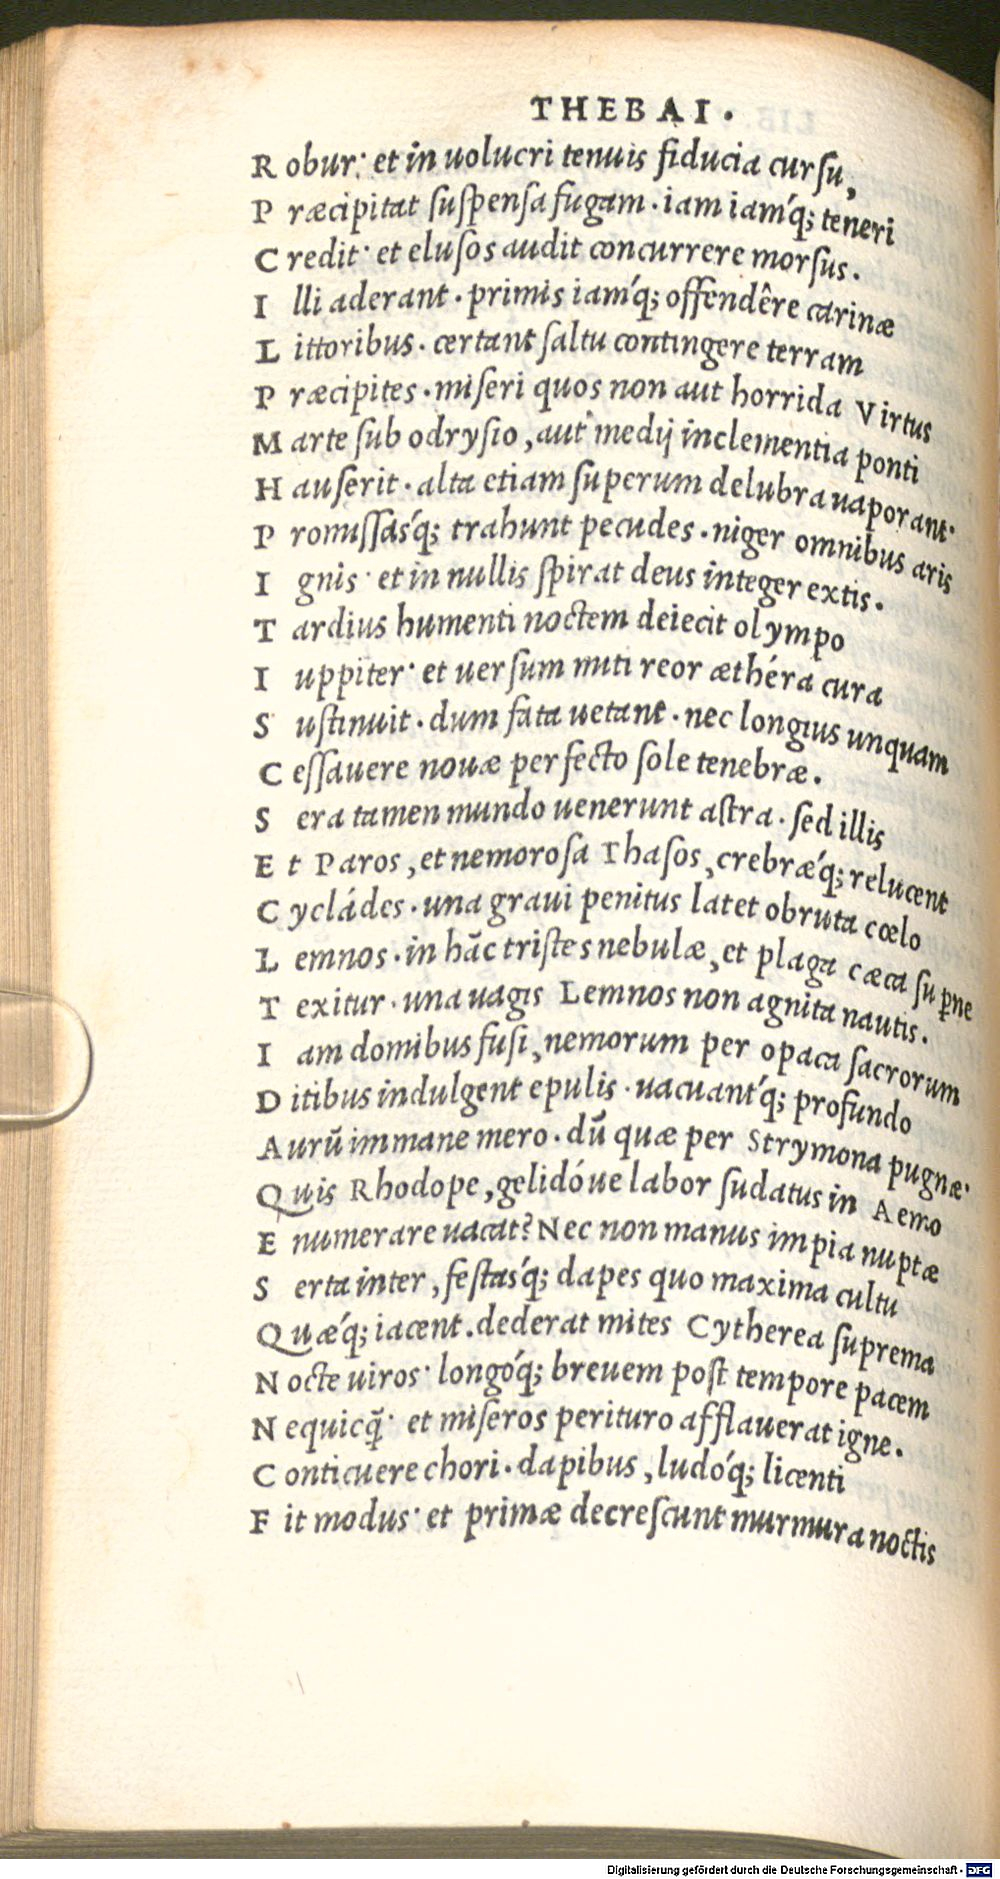 THEBAI.
R obur· et in uolucri tenuis fiducia cursu,
P ræcipitat suspensa fugam · iam iamq́; teneri
C redit· et elusos audit concurrere morsus.
I lli aderant · primis iamq́; offendêre carinæ
L ittoribus · certant saltu contingere terram
P ræcipites · miseri quos non aut horrida Virtus
M arte sub odrysio, aut medij inclementia ponti
H auserit · alta etiam superum delubra uaporant·
P romissasq́; trahunt pecudes · niger omnibus aris
I gnis· et in nullis spirat deus integer extis.
T ardius humenti noctem deiecit olympo
I uppiter· et uersum miti reor æthéra cura
S ustinuit · dum fata uetant · nec longius unquam
C essauere nouæ perfecto sole tenebræ.
S era tamen mundo uenerunt astra · sed illis
E t Paros, et nemorosa Thasos, crebræq́; relucent
C ycládes · una graui penitus latet obruta cœlo
L emnos · in hāc tristes nebulæ, et plaga cæca sup̱ne
T exitur · una uagis Lemnos non agnita nautis.
I am domibus fusi, nemorum per opaca sacrorum
D itibus indulgent epulis · uacuantq́; profundo
A urū immane mero · dū quæ per Strymona pugnæ·
Q uis Rhodope, gelidóue labor sudatus in Aemo
E numerare uacat? Nec non manus impia nuptæ
S erta inter, festasq́; dapes quo maxima cultu
Q uæq́; iacent. dederat mites Cytherea suprema
N octe uiros· longoq́; breuem post tempore pacem
N equicq̄· et miseros perituro afflauerat igne.
C onticuere chori · dapibus, ludoq́; licenti
F it modus· et primæ decrescunt murmura noctis
Digitalisierung gefördert durch die Deutsche Forschungsgemeinschaft - DFG